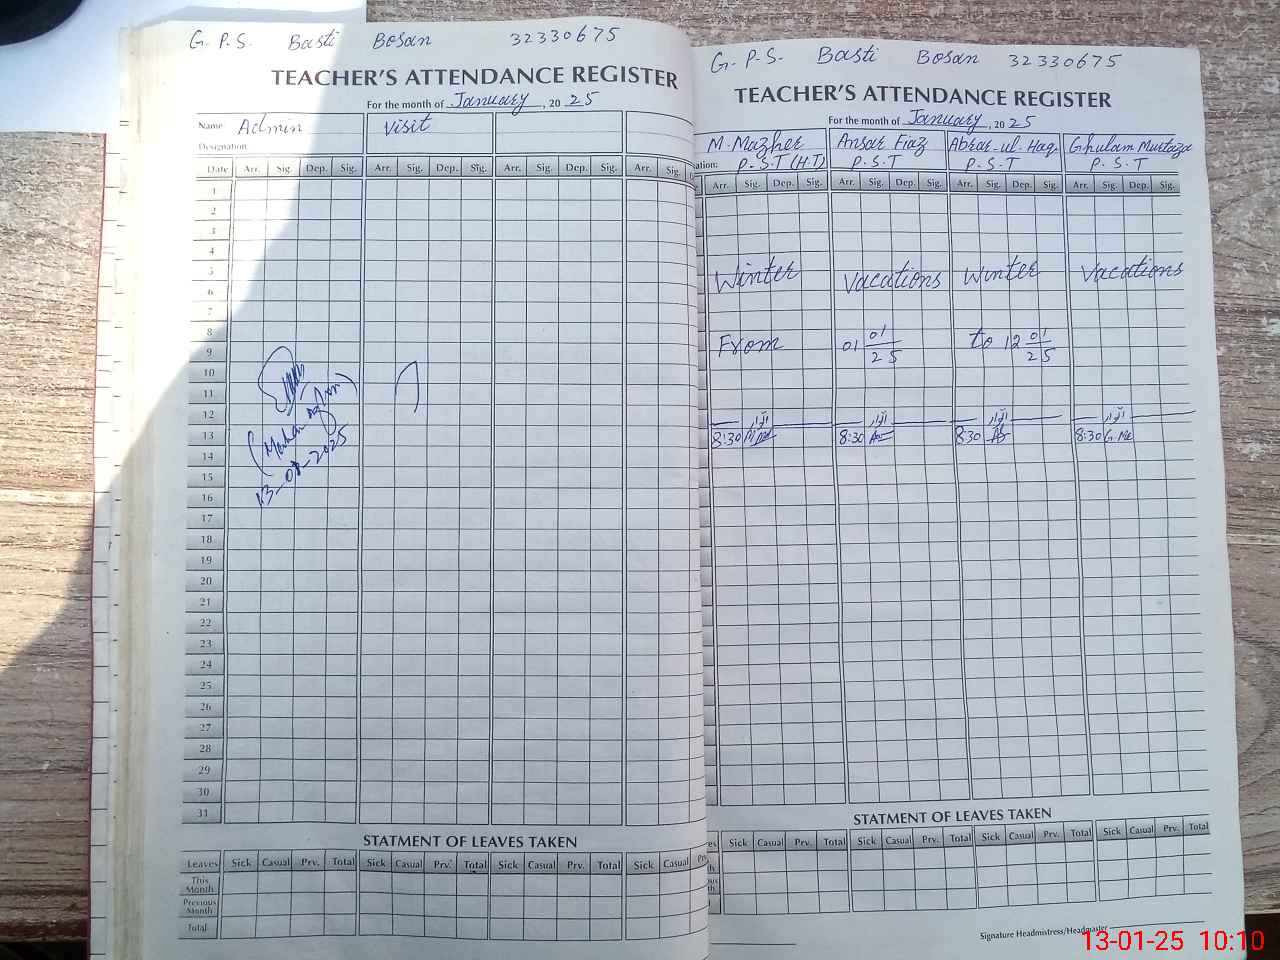 G. P. S. Basti Bosan 32330675
TEACHER'S ATTENDANCE REGISTER
For the month of January, 2025
Name Admin Visit
Designation:
Date Arr. Sig. Dep. Sig. Arr. Sig. Dep. Sig. Arr. Sig. Dep. Sig. Arr. Sig.
1
2
3
4
5
6
7
8
9
10
11
12
13
14
15
16
17
18
19
20
21
22
23
24
25
26
27
28
29
30
31
13-01-2025
STATMENT OF LEAVES TAKEN
Leaves Sick Casual Prv. Total Sick Casual Prv. Total Sick Casual Prv. Total Sick Casual
This Month
Previous Month
Total
G. P. S. Basti Bosan 32330675
TEACHER'S ATTENDANCE REGISTER
For the month of January, 2025
M. Mazher Ansar Fiaz Abrar-ul-Haq Ghulam Murtaza
P.S.T (H.T) P.S.T P.S.T P.S.T
Arr. Sig. Dep. Sig. Arr. Sig. Dep. Sig. Arr. Sig. Dep. Sig. Arr. Sig. Dep. Sig.
Winter Vacations Winter Vacations
From 01 01/25 to 12 01/25
اتوار اتوار اتوار اتوار
8:30 8:30 8:30 8:30
STATMENT OF LEAVES TAKEN
Sick Casual Prv. Total Sick Casual Prv. Total Sick Casual Prv. Total Sick Casual Prv. Total
Signature Headmistress/Headmaster
13-01-25 10:10